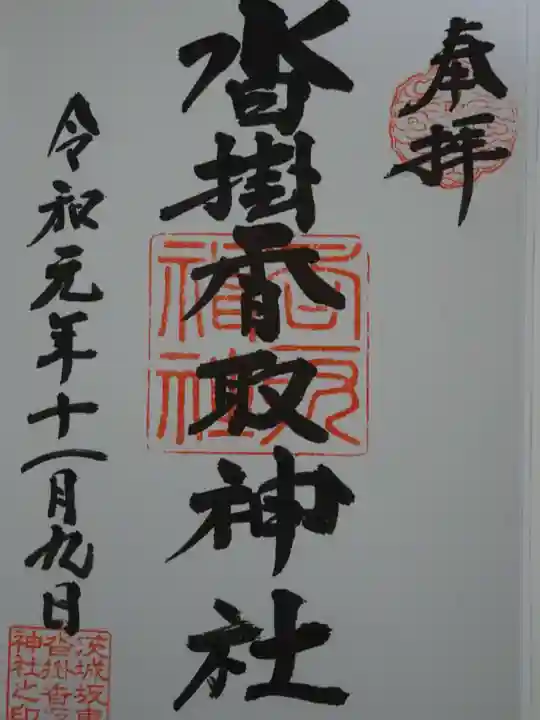 奉拝
沓掛香取神社
令和元年十一月九日
茨城坂東
沓掛香取
神社之印